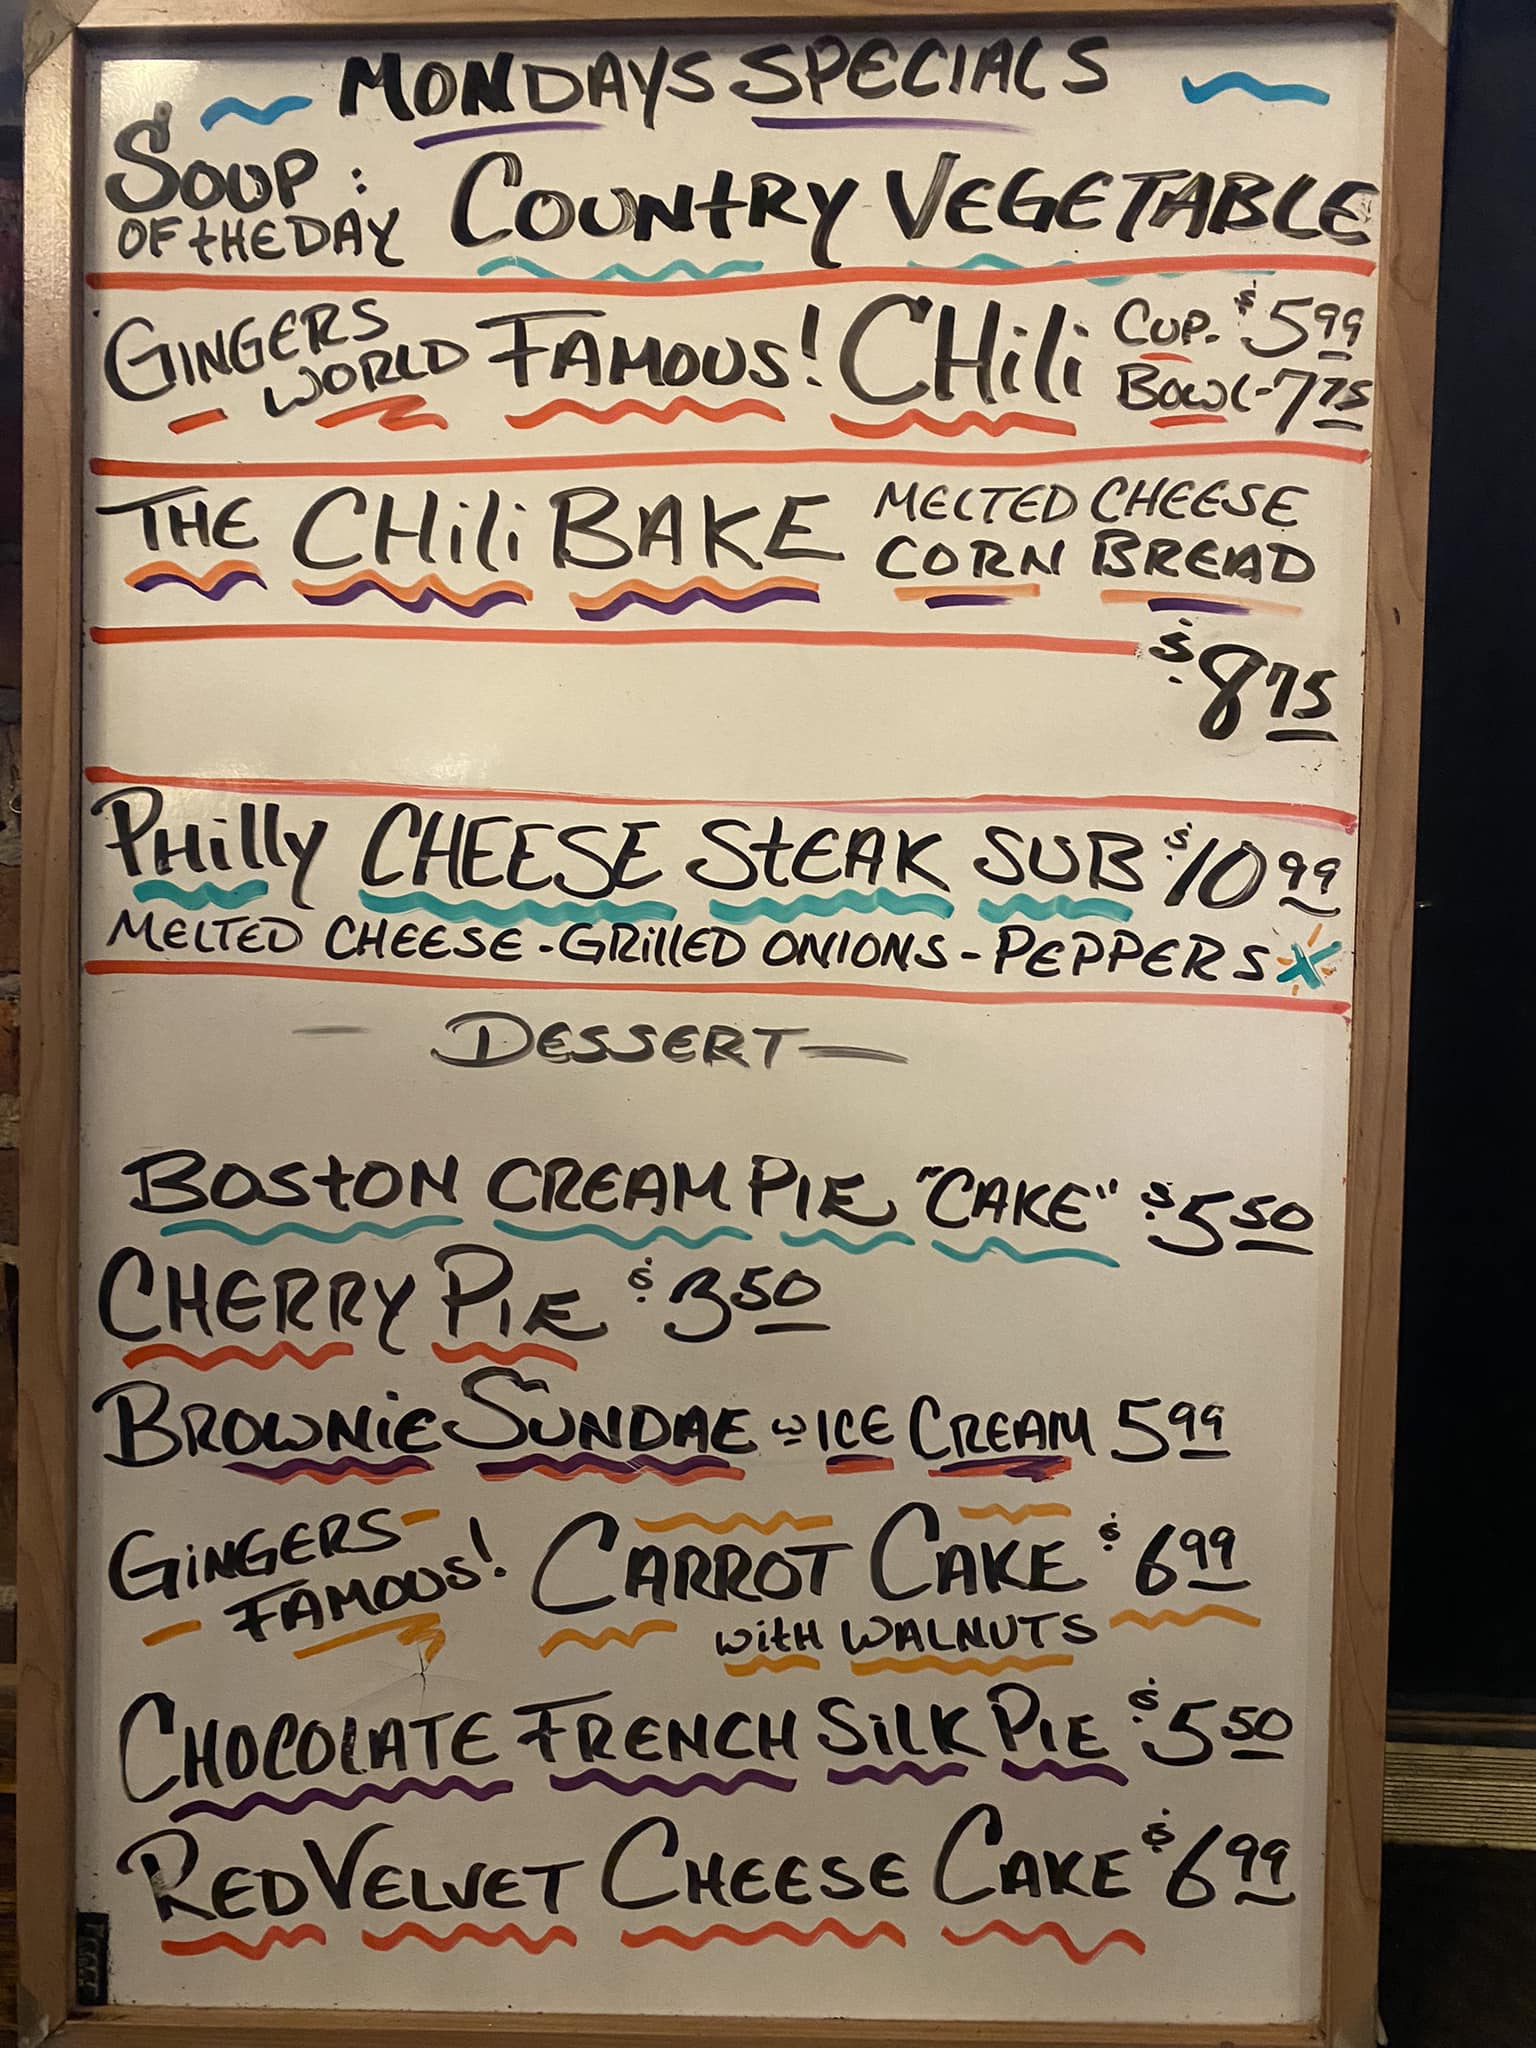 MONDAYS SPECIALS
SOUP: OF tHE DAY COUNtRY VEGETABLE
GINGERS WORLD FAMOUS! CHili CUP. $5.99
BOWL-7.75
THE CHili BAKE MELTED CHEESE
CORN BREAD
$8.75
PHilly CHEESE StEAK SUB $10.99
MELTED CHEESE-GRillED ONIONS-PEPPERS
- DESSERT -
BOStON CREAM PIE "CAKE" $5.50
CHERRY PIE $3.50
BROWNiE SUNDAE w ICE CREAM 5.99
GiNGERS FAMOUS! CARROT CAKE $6.99
WitH WALNUTS
CHOCOLATE FRENCH SiLK PIE $5.50
RED VELVET CHEESE CAKE $6.99